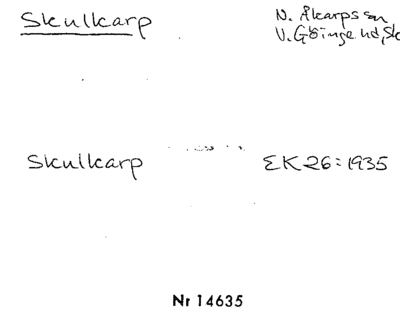 Skulkarp
N. Åkarps sn
V. Göinge hd, Sk
Skulkarp
EK 26:1935
Nr 14635